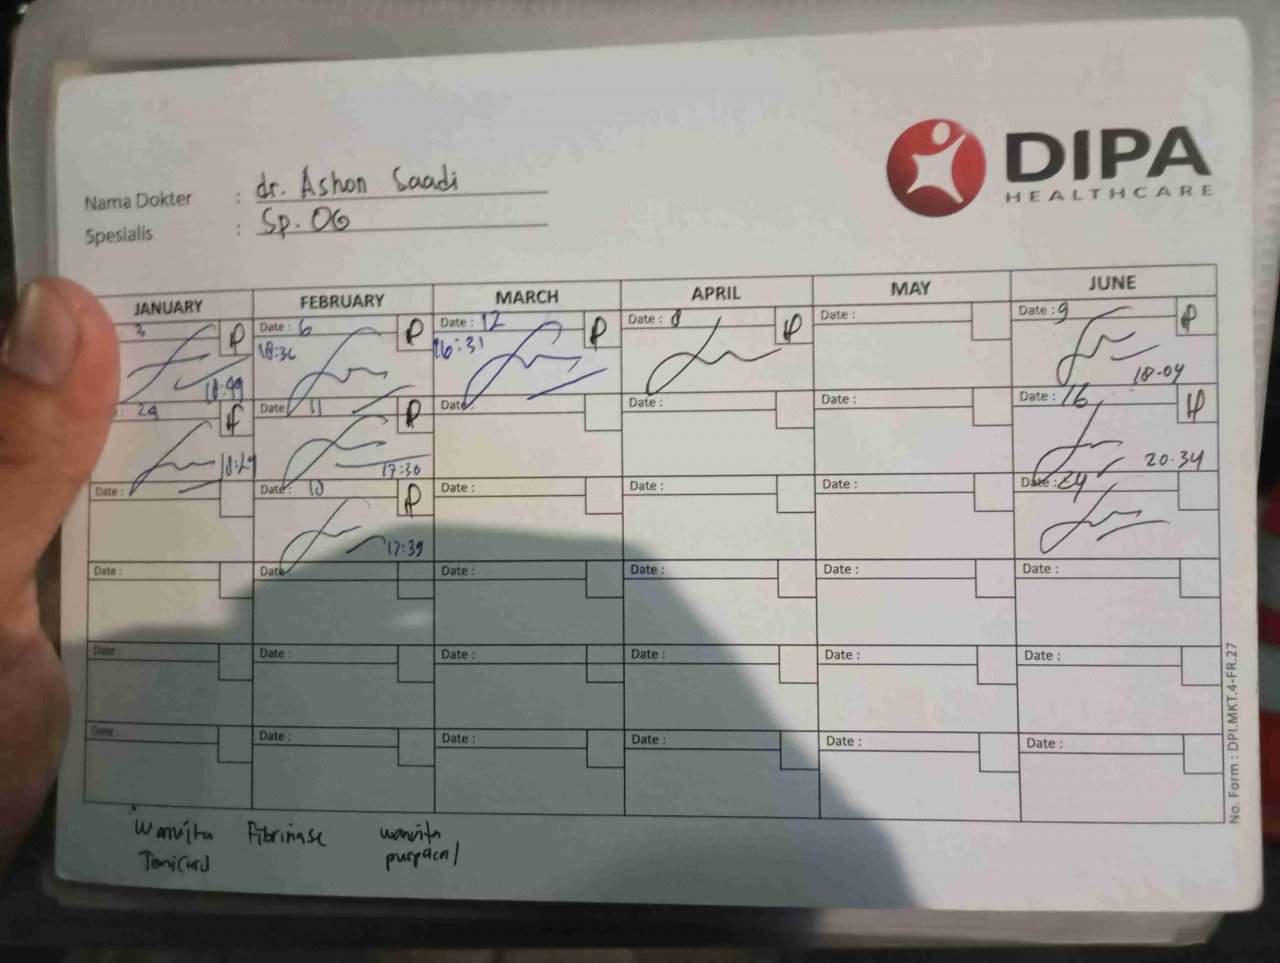 DIPA
HEALTHCARE
Nama Dokter : dr. Ashon Saadi
Spesialis : Sp. OG
JANUARY FEBRUARY MARCH APRIL MAY JUNE
3 P Date : 6 P Date : 12 P Date : 8 P Date : Date : 9 P
18:49 18:36 16:31 18-04
: 29 P Date : 11 P Date : Date : Date : Date : 16 P
18:29 17:30 20-34
Date : Date : 18 P Date : Date : Date : Date : 24
17:39
Date : Date : Date : Date : Date : Date :
Date : Date : Date : Date : Date : Date :
Date : Date : Date : Date : Date : Date :
Wanvita Fibrinase wanvita
No. Form : DPI.MKT.4-FR.27